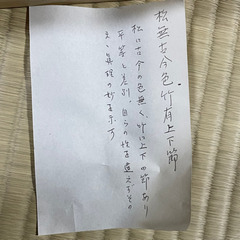 松無古今色 竹有上下節
松に古今の色無く、竹に上下の節あり
平等と差別、自らの性を違えずその
まゝ真理の妙を示す